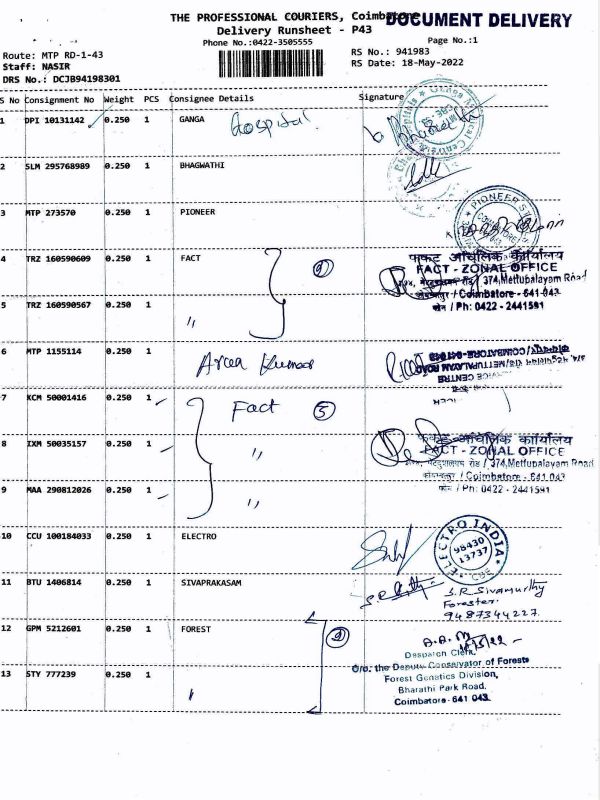 THE PROFESSIONAL COURIERS, Coimbatore
DOCUMENT DELIVERY
Delivery Runsheet - P43
Phone No.:0422-3505555
Page No.:1
Route: MTP RD-1-43
RS No.: 941983
Staff: NASIR
RS Date: 18-May-2022
DRS No.: DCJB94198301
S No Consignment No Weight PCS Consignee Details Signature
1 DPI 10131142 0.250 1 GANGA Hospital
2 SLM 295768989 0.250 1 BHAGWATHI
3 MTP 273570 0.250 1 PIONEER
PIONEER
4 TRZ 160590609 0.250 1 FACT
FACT - ZONAL OFFICE
374, Mettupalayam Road
/ Coimbatore - 641 043
/ Ph: 0422 - 2441591
5 TRZ 160590567 0.250 1 "
6 MTP 1155114 0.250 1 Kumar
COIMBATORE-641043
METTUPALAYAM ROAD
CENTRE
7 KCM 50001416 0.250 1 Fact 5
8 IXM 50035157 0.250 1 "
FACT - ZONAL OFFICE
374, Mettupalayam Road
/ Coimbatore - 641 043
/ Ph: 0422 - 2441591
9 MAA 290812026 0.250 1 "
10 CCU 100184033 0.250 1 ELECTRO
ELECTRO INDIA
98430
13737
CBE
11 BTU 1406814 0.250 1 SIVAPRAKASAM
S.R Sivamurthy
Forester
9487344227
12 GPM 5212601 0.250 1 FOREST
Despatch Clerk,
O/o. the Deputy Conservator of Forests
Forest Genetics Division,
Bharathi Park Road,
Coimbatore - 641 043.
13 STY 777239 0.250 1 "